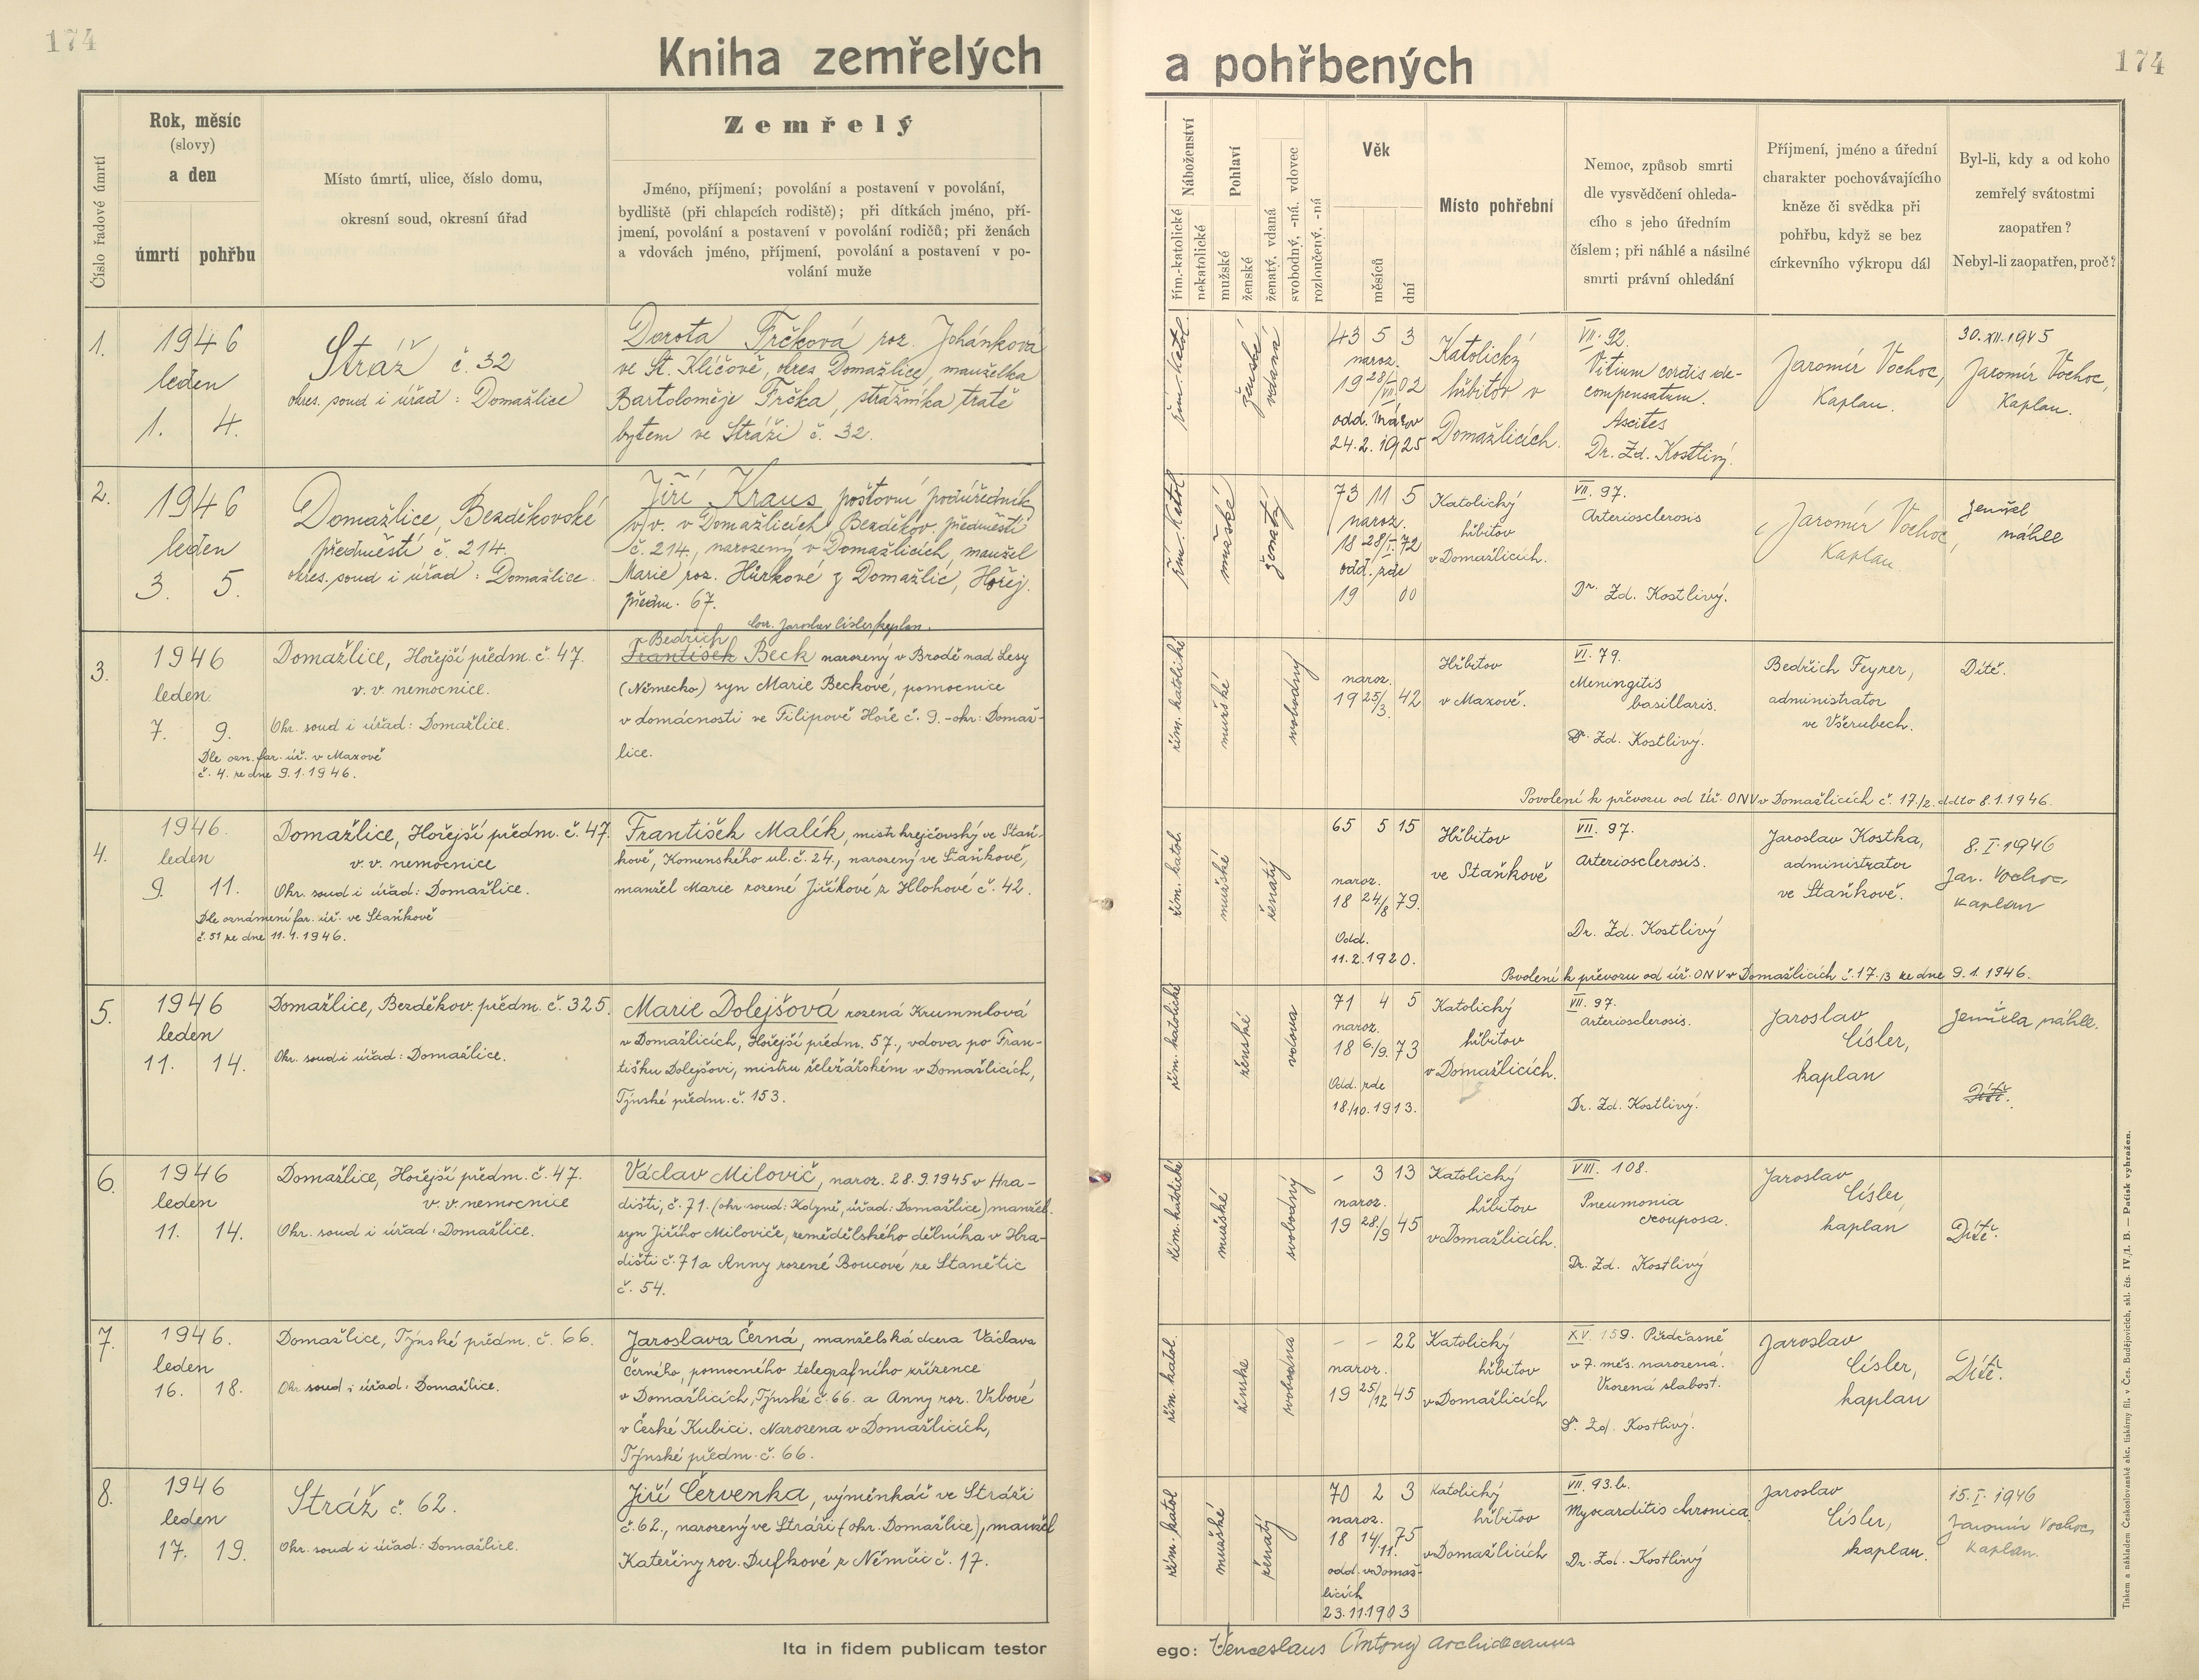 174
Kniha zemřelých
a pohřbených
174
Číslo řadové úmrtí
Rok, měsíc
(slovy)
a den
úmrtí
pohřbu
Místo úmrtí, ulice, číslo domu,
okresní soud, okresní úřad
Zemřelý
Jméno, příjmení; povolání a postavení v povolání,
bydliště (při chlapcích rodiště); při dítkách jméno, pří-
jmení, povolání a postavení v povolání rodičů; při ženách
a vdovách jméno, příjmení, povolání a postavení v po-
volání muže
Náboženství
řím.-katolické
nekatolické
Pohlaví
mužské
ženské
ženatý, vdaná
svobodný, -ná. vdovec
rozloučený, -ná
Věk
měsíců
dní
Místo pohřební
Nemoc, způsob smrti
dle vysvědčení ohleda-
cího s jeho úředním
číslem; při náhlé a násilné
smrti právní ohledání
Příjmení, jméno a úřední
charakter pochovávajícího
kněze či svědka při
pohřbu, když se bez
církevního výkropu dál
Byl-li, kdy a od koho
zemřelý svátostmi
zaopatřen?
Nebyl-li zaopatřen, proč?
1.
1946
leden
1. 4.
Stráž č. 32
okres. soud i úřad: Domažlice
Dorota Frčková roz. Johánková
ve St. Klíčově, okres Domažlice, manželka
Bartoloměje Frčka, strážníka tratě
bytem ve Stráži č. 32.
řím. katol.
ženské
vdaná
43 5 3
naroz.
19 28/VII 02
odd.
24.2.1925
Katolický
hřbitov v
Domažlicích.
VII. 92.
Vitium cordis de-
compensatum.
Ascites
Dr. Zd. Kostlivý.
Jaromír Vochoc,
Kaplan.
30.XII.1945
Jaromír Vochoc,
Kaplan.
2.
1946
leden
3. 5.
Domažlice, Bezděkovské
předměstí č. 214.
okres. soud i úřad: Domažlice.
Jiří Kraus, poštovní podúředník
v.v. v Domažlicích Bezděkov. předměstí
č. 214, narozený v Domažlicích, manžel
Marie roz. Hůrkové z Domažlic, Hořej.
předm. 67.
řím. katol
mužské
ženatý
73 11 5
naroz.
18 28/I. 72
odd. zde
19 00
Katolický
hřbitov
v Domažlicích.
VII. 97.
Arteriosclerosis
Dr. Zd. Kostlivý.
Jaromír Vochoc,
Kaplan
Zemřel
náhle
3.
1946
leden
7. 9.
Dle ozn. far. úř. v Maxově
č. 4. ze dne 9.1.1946.
Domažlice, Hořejší předm. č. 47.
v. v. nemocnice.
Okr. soud i úřad: Domažlice.
corr. Jaroslav Císler, kaplan.
Bedřich
František Beck narozený v Brodě nad Lesy
(Německo) syn Marie Beckové, pomocnice
v domácnosti ve Filipově Hoře č. 9. - okr: Domaž-
lice.
řím. katolické
mužské
svobodný
naroz.
19 25/3. 42
Hřbitov
v Maxově.
VI. 79.
Meningitis
basillaris.
Dr. Zd. Kostlivý.
Bedřich Feyrer,
administrator
ve Všerubech.
Dítě.
Povolení k převozu od Úř. ONV v Domažlicích č. 17/2. ddto 8.1.1946.
4.
1946.
leden
9. 11.
Dle oznámení far. úř. ve Staňkově
č. 51 ze dne 11.1.1946.
Domažlice, Hořejší předm. č. 47.
v. v. nemocnice
Okr. soud i úřad: Domažlice.
František Malík, mistr krejčovský ve Staň-
kově, Komenského ul. č. 24., narozený ve Staňkově,
manžel Marie rozené Jiříkové z Hlohové č. 42.
řím. katol.
mužské
ženatý
65 5 15
naroz.
18 24/8 79.
Odd.
11.2.1920.
Hřbitov
ve Staňkově
VII. 97.
Arteriosclerosis.
Dr. Zd. Kostlivý
Jaroslav Kostka,
administrator
ve Staňkově.
8.I.1946
Jar. Vochoc,
kaplan
Povolení k převozu od úř. ONV v Domažlicích č. 17./3 ze dne 9.1.1946.
5.
1946
leden
11. 14.
Domažlice, Bezděkov. předm. č. 325.
Okr. soud i úřad: Domažlice.
Marie Dolejšová rozená Krummlová
v Domažlicích, Hořejší předm. 57., vdova po Fran-
tišku Dolejšovi, mistru železářském v Domažlicích,
Týnské předm. č. 153.
řím. katolické
ženské
vdova
71 4 5
naroz.
18 6./9. 73
Odd. zde
18./10.1913.
Katolický
hřbitov
v Domažlicích.
VII. 97.
Arteriosclerosis.
Dr. Zd. Kostlivý.
Jaroslav
Císler,
kaplan
Zemřela náhle.
Dítě.
6.
1946
leden
11. 14.
Domažlice, Hořejší předm. č. 47.
v. v. nemocnice
Okr. soud i úřad: Domažlice.
Václav Milovič, naroz. 28.9.1945 v Hra-
dišti, č. 71. (okr. soud: Kdyně, úřad: Domažlice) manžel.
syn Jiřího Miloviče, zemědělského dělníka v Hra-
dišti č. 71 a Anny rozené Boucové ze Stanětic
č. 54.
řím. katolické
mužské
svobodný
- 3 13
naroz.
19 28./9 45
Katolický
hřbitov
v Domažlicích.
VIII. 108.
Pneumonia
crouposa.
Dr. Zd. Kostlivý
Jaroslav
Císler,
kaplan
Dítě.
7.
1946.
leden
16. 18.
Domažlice, Týnské předm. č. 66.
Okr. soud i úřad: Domažlice.
Jaroslava Černá, manželská dcera Václava
Černého, pomocného telegrafního zřízence
v Domažlicích, Týnské č. 66. a Anny roz. Vrbové
v České Kubici. Narozena v Domažlicích,
Týnské předm. č. 66.
řím. katol.
ženské
svobodná
- - 22
naroz.
19 25/12 45
Katolický
hřbitov
v Domažlicích
XV. 159. Předčasně
v 7. měs. narozená.
Vrozená slabost.
Dr. Zd. Kostlivý.
Jaroslav
Císler,
kaplan
Dítě.
8.
1946
leden
17. 19.
Stráž č. 62.
Okr. soud i úřad: Domažlice.
Jiří Červenka, výměnkář ve Stráži
č. 62., narozený ve Stráži (okr. Domažlice), manžel
Kateřiny roz. Dufkové z Němčic č. 17.
řím. katol
mužské
ženatý
70 2 3
naroz.
18 14/11. 75
odd. v Domaž-
licích
23.11.1903
Katolický
hřbitov
v Domažlicích
VII. 93.b.
Myocarditis chronica
Dr. Zd. Kostlivý
Jaroslav
Císler,
kaplan.
15.I.1946
Jaromír Vochoc,
Kaplan.
Ita in fidem publicam testor
ego: Venceslaus Antony archidecanus
Tiskem a nákladem Českoslovanské akc. tiskárny fil. v Čes. Budějovicích, skl. čís. IV./1. B. — Patisk vyhražen.